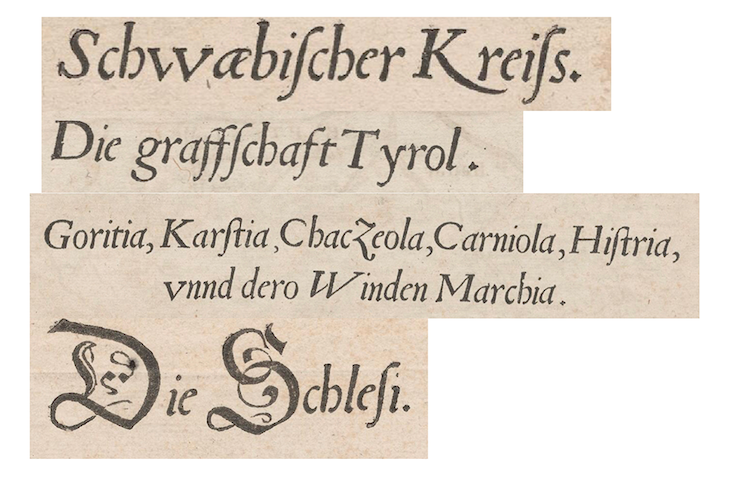 Schwæbiſcher Kreiſs.
Die graffſchaft Tyrol.
Goritia, Karſtia, ChacZeola, Carniola, Hiſtria,
vnnd dero Winden Marchia.
Die Schleſi.